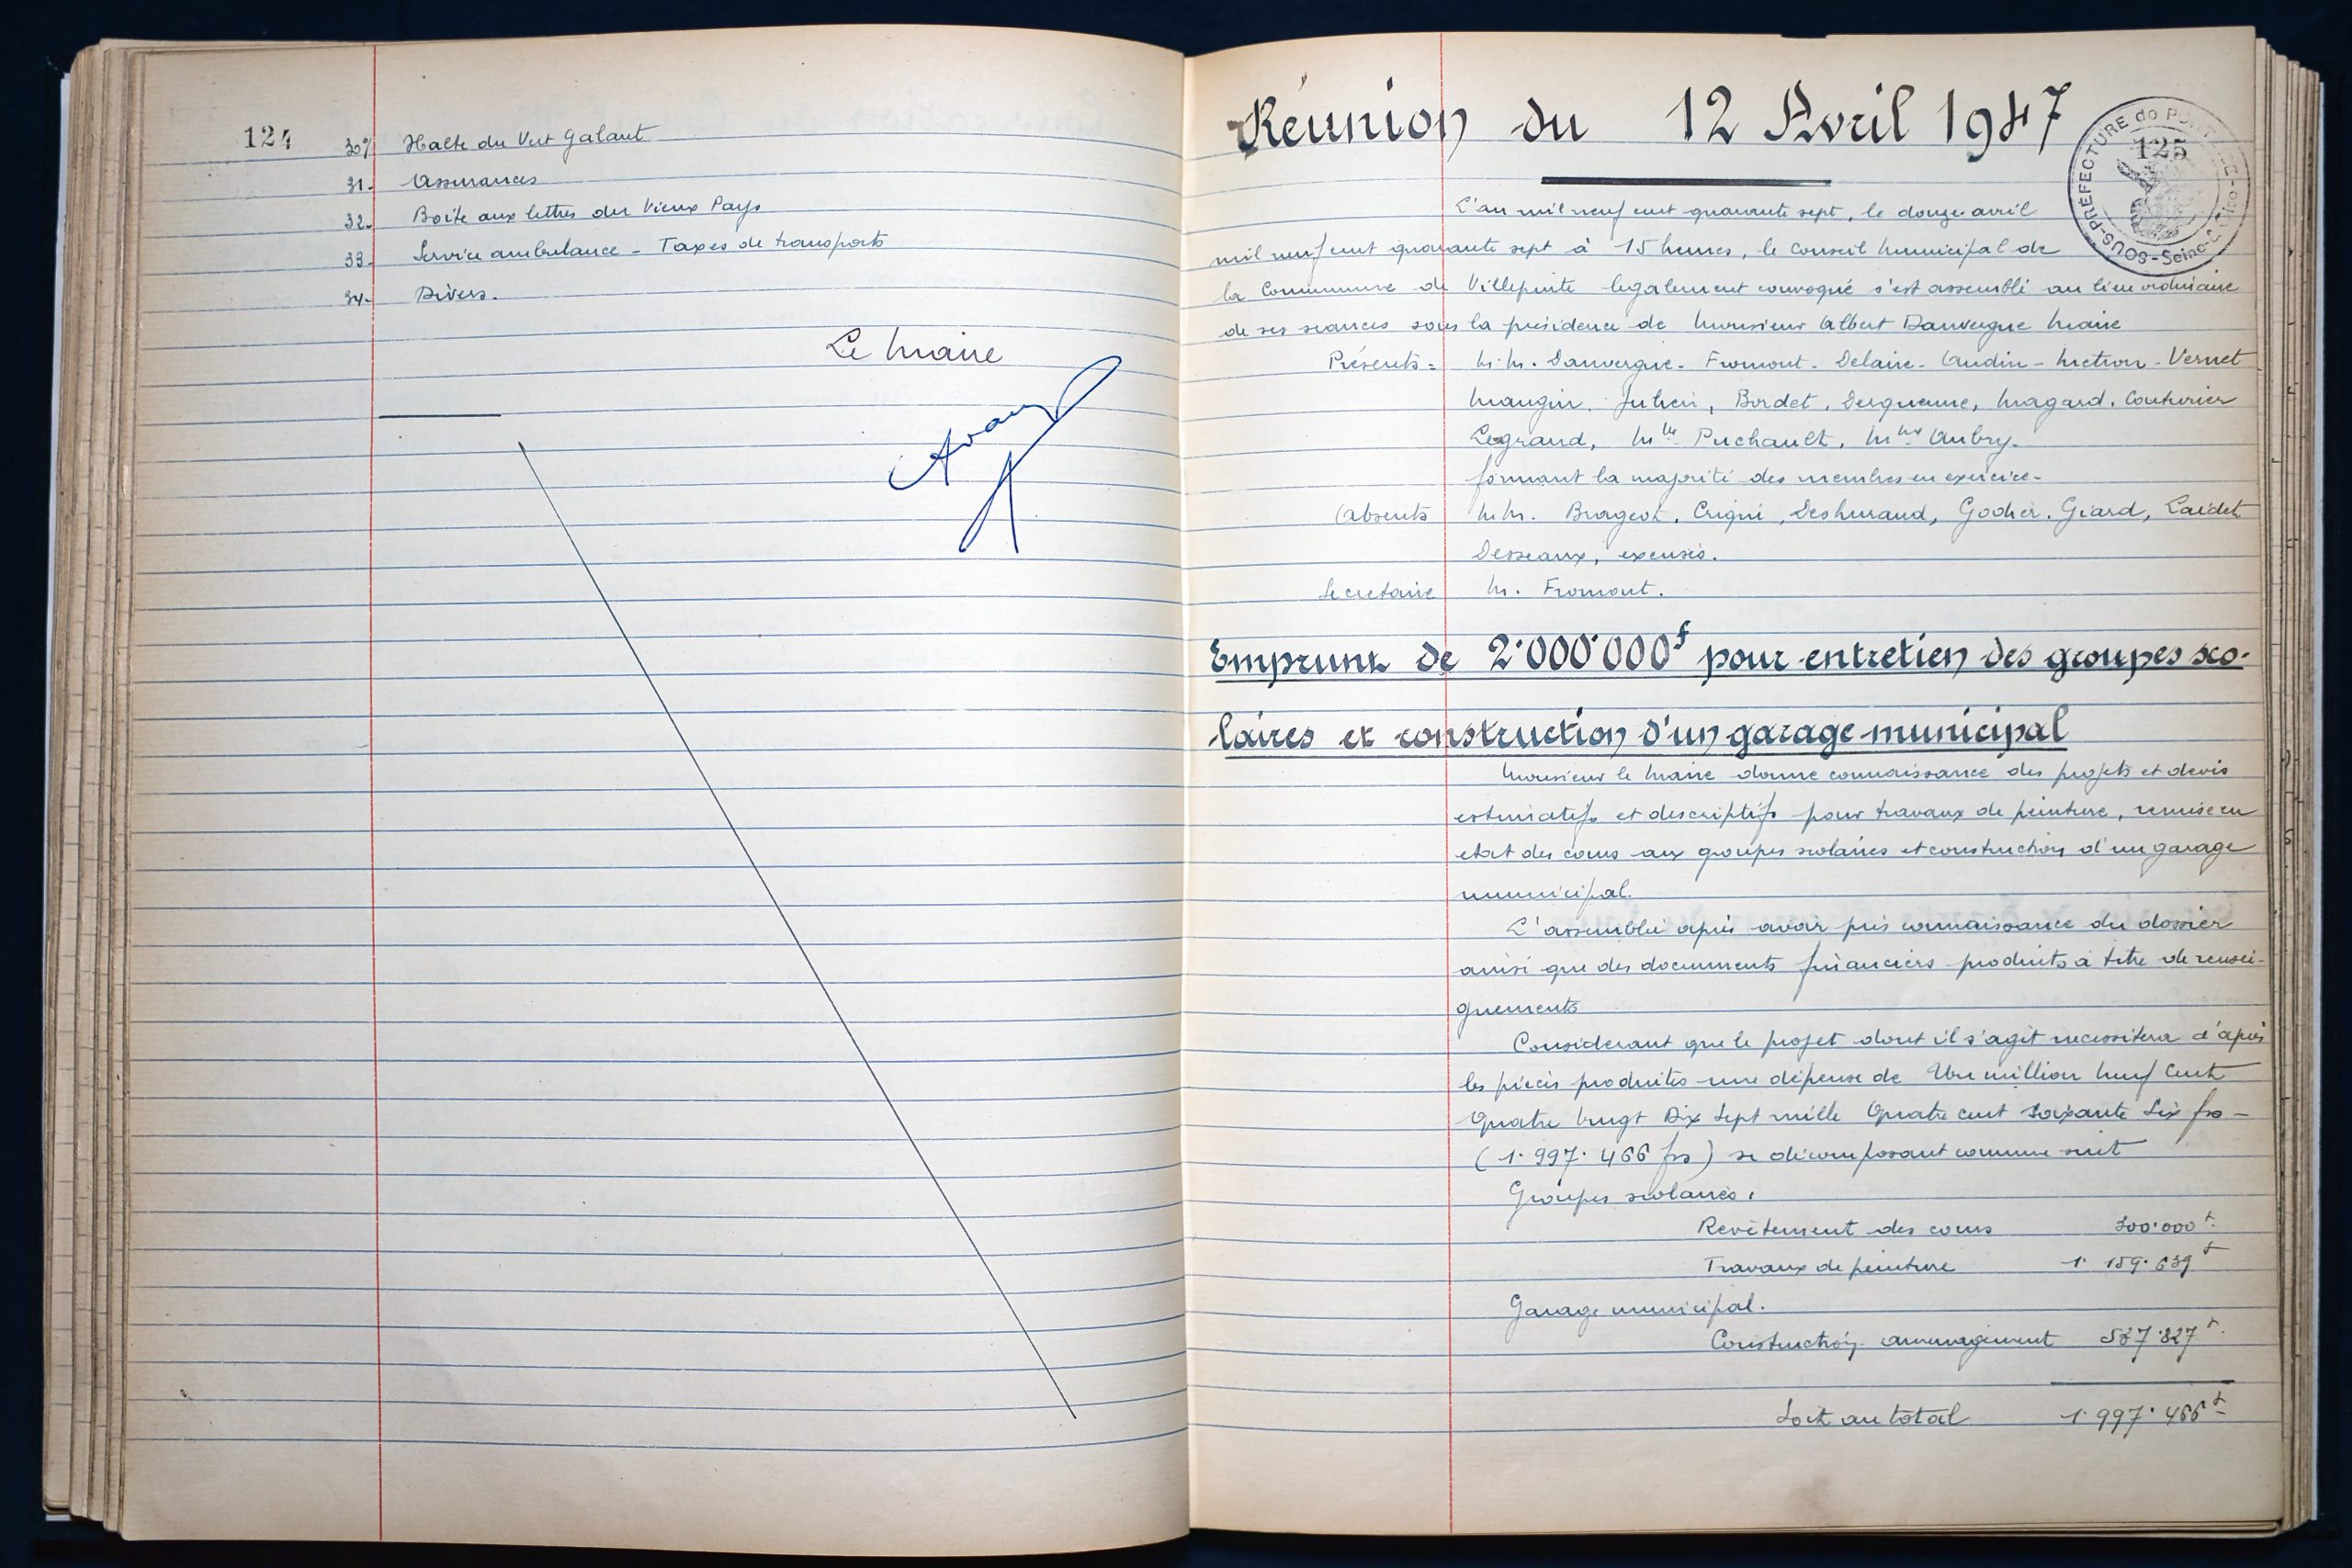 124
30°/ Halte du Vert Galant
31- Assurances
32- Boite aux lettres du Vieux Pays
33- Service ambulance - Taxes de transports
34- Divers.
Le Maire
Réunion du 12 Avril 1947
SOUS-PRÉFECTURE de PONTOISE - Seine-&-Oise
125
L'an mil neuf cent quarante sept, le douze avril
mil neuf cent quarante sept à 15 heures, le Conseil Municipal de
la Commune de Villepinte legalement convoqué s'est assemblé au lieu ordinaire
de ses seances sous la présidence de Monsieur Albert Dauvergne Maire
Présents = M.M. Dauvergne - Fromont - Delaire - Audin - Metron - Vernet
Mangin, Julien, Bordet, Duquenne, Magard, Couturier
Legrand, Mlle Puchault, Mme Aubry.
formant la majorité des membres en exercice.
Absents M.M. Brageot, Crigni, Deshuraud, Gocher, Giard, Laidet
Desseaux, excusés.
Secretaire M. Fromont.
Emprunt de 2.000.000f pour entretien des groupes sco-
laires et construction d'un garage municipal
Monsieur le Maire donne connaissance des projets et devis
estimatifs et descriptifs pour travaux de peinture, remise en
etat des cours aux groupes scolaires et construction d'un garage
municipal.
L'assemblée après avoir pris connaissance du dossier
ainsi que des documents financiers produits à titre de rensei-
gnements
Considerant que le projet dont il s'agit necessitera d'après
les pièces produites une dépense de Un million Neuf Cent
Quatre Vingt Dix Sept mille Quatre cent Soixante Six frs -
(1.997.466 frs) se décomposant comme suit
Groupes scolaires.
Revêtement des cours 300.000 f.
Travaux de peinture 1.159.639 f
Garage municipal.
Construction amenagement 537.827 f.
Soit au total 1.997.466 f